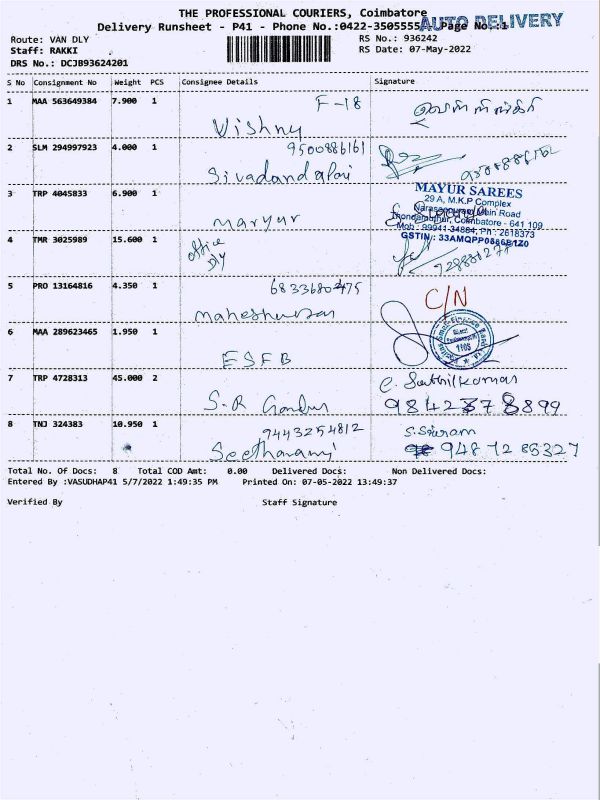 THE PROFESSIONAL COURIERS, Coimbatore
AUTO DELIVERY
Delivery Runsheet - P41 - Phone No.:0422-3505555 Page No.:1
Route: VAN DLY
RS No.: 936242
Staff: RAKKI
RS Date: 07-May-2022
DRS No.: DCJB93624201
S No Consignment No Weight PCS Consignee Details Signature
1 MAA 563649384 7.900 1 F-18
Vishnu
2 SLM 294997923 4.000 1 9500886161
Sivadandapani
3 TRP 4045833 6.900 1
MAYUR SAREES
29 A, M.K.P Complex
Narasapuram Main Road
Thondamuthur, Coimbatore - 641 109
Mob : 99941 34884, Ph : 2618373
GSTIN : 33AMQPP0386B1Z0
4 TMR 3025989 15.600 1 office
Dly
5 PRO 13164816 4.350 1 C/N
6 MAA 289623465 1.950 1
ESFB
7 TRP 4728313 45.000 2
S.R
9842378899
8 TNJ 324383 10.950 1 9443254812
S.Sriram
Total No. Of Docs: 8 Total COD Amt: 0.00 Delivered Docs: Non Delivered Docs:
Entered By :VASUDHAP41 5/7/2022 1:49:35 PM Printed On: 07-05-2022 13:49:37
Verified By Staff Signature